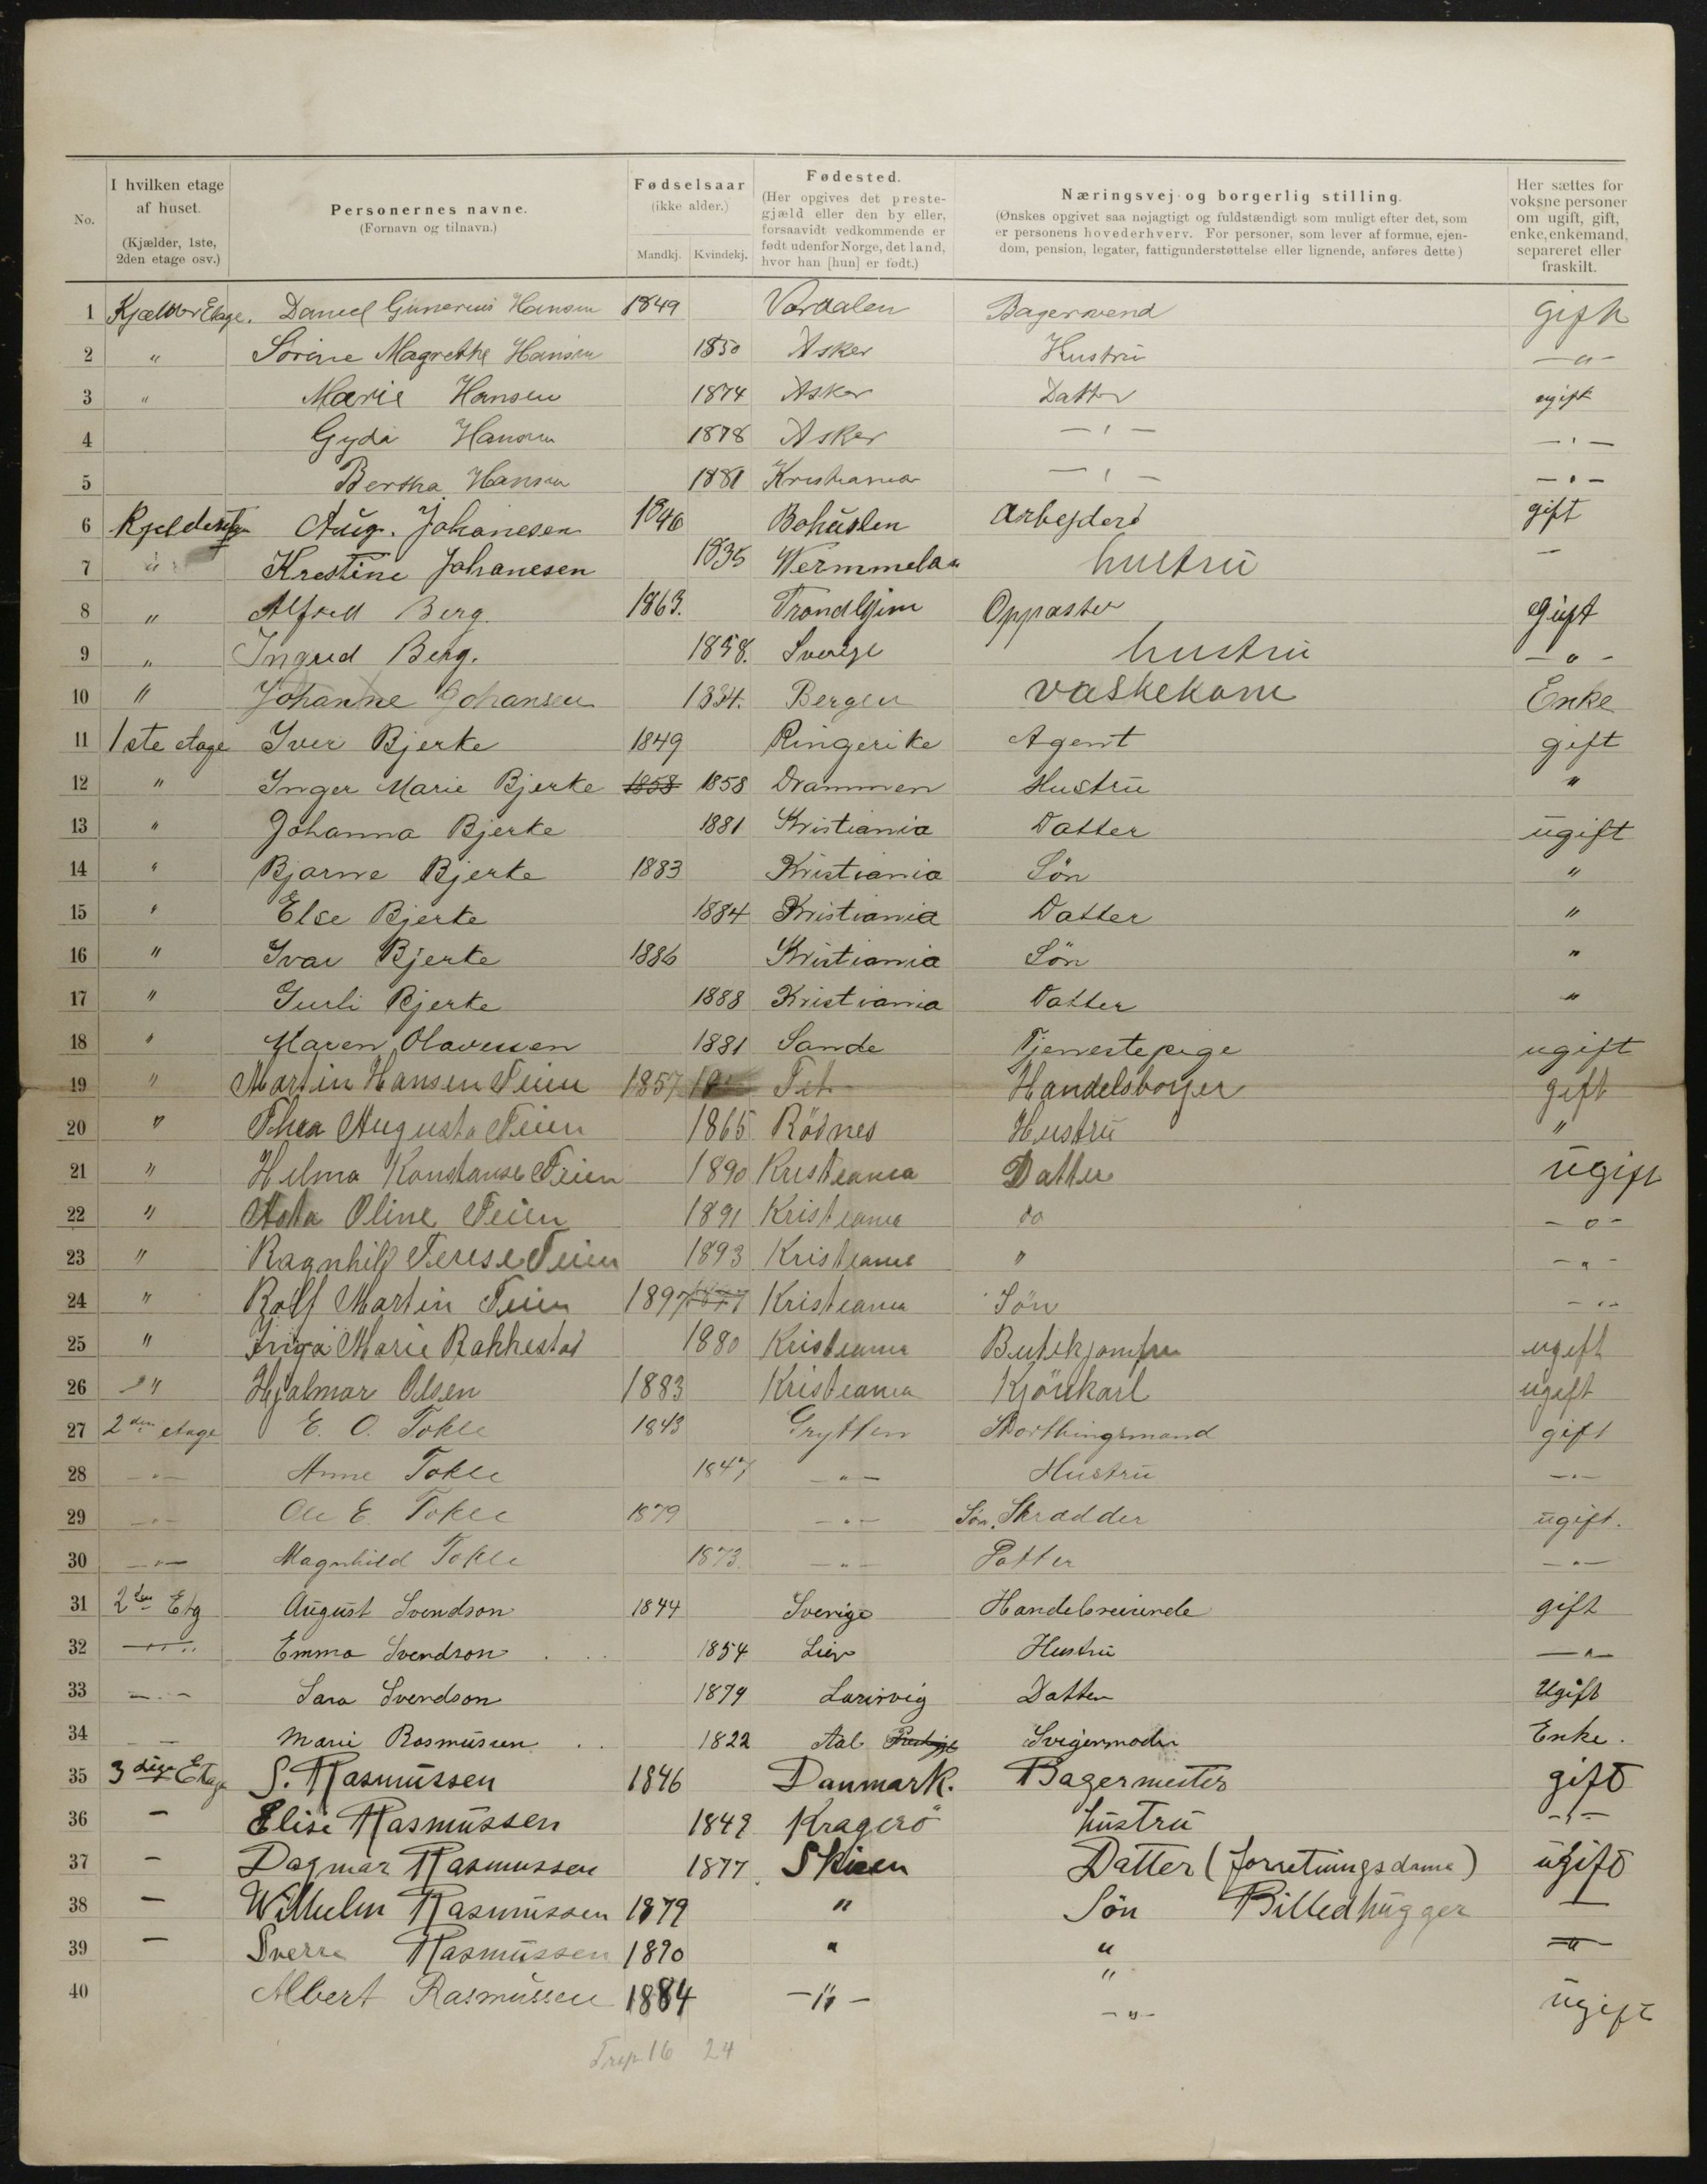 No.
I hvilken etage af huset.
(Kjælder, 1ste, 2den etage osv.)
Personernes navne.
(Fornavn og tilnavn.)
Fødselsaar
(ikke alder.)
Mandkj. Kvindekj.
Fødested.
(Her opgives det prestegjæld eller den by eller, forsaavidt vedkommende er født udenfor Norge, det land, hvor han [hun] er født.)
Næringsvej og borgerlig stilling.
(Ønskes opgivet saa nøjagtigt og fuldstændigt som muligt efter det, som er personens hovederhverv. For personer, som lever af formue, ejendom, pension, legater, fattigunderstøttelse eller lignende, anføres dette)
Her sættes for voksne personer om ugift, gift, enke, enkemand, separeret eller fraskilt.
1 Kjælder Etage. Daniel Gunerius Hansen 1849 Værdalen Bagersvend gift
2 " Sorine Magrethe Hansen 1850 Asker Hustru — " —
3 " Marie Hansen 1874 Asker Datter ugift
4 Gyda Hansen 1878 Asker — " — — " —
5 Bertha Hansen 1881 Kristiania — " — — " —
6 Aug. Johanesen 1846 Bohuslen Arbejder gift
7 " Krestine Johanesen 1835 Wermmelan hustru —
8 " Alfred Berg. 1863. Trondhjim Oppasser Gift
9 " Ingrid Berg. 1858. Sverige hustru — " —
10 " Johanne Johansen 1834. Bergen vaskekone Enke
11 1ste etage Iver Bjerke 1849 Ringerike Agent gift
12 " Inger Marie Bjerke 1858 1858 Drammen Hustru "
13 " Johanna Bjerke 1881 Kristiania Datter ugift
14 " Bjarne Bjerke 1883 Kristiania Søn "
15 " Else Bjerke 1884 Kristiania Datter "
16 " Ivar Bjerke 1886 Kristiania Søn "
17 " Gurli Bjerke 1888 Kristiania Datter "
18 " Maren Olavesen 1881 Sande Tjenestepige ugift
19 " Martin Hansen Teien 1857 Fet Handelsborger gift
20 " Thea Augusta Teien 1865 Rödnes Hustru "
21 " Helma Konstanse Teien 1890 Kristeania Datter ugift
22 " Asta Oline Teien 1891 Kristeania do — " —
23 " Ragnhild Terese Teien 1893 Kristeania " — " —
24 " Rolf Martin Teien 1897 1897 Kristeania Sön — " —
25 " Inga Marie Rakkestad 1880 Kristeania Butikjomfru ugift
26 " Hjalmar Olsen 1883 Kristeania Kjörekarl ugift
27 2den etage E. O. Tokle 1843 Grytten Storthingsmand gift
28 — " — Anne Tokle 1847 — " — Hustru — " —
29 — " — Ole E. Tokle 1879 — " — Søn, Skrædder ugift.
30 — " — Magnhild Tokle 1873. — " — Datter — " —
31 2den Etg August Svendson 1844 Sverige Handelsreisende gift
32 — " — Emma Svendson 1854 Lier Hustru — " —
33 — " — Sara Svendson 1879 Larvvig Datter Ugift
34 — Marie Rasmussen 1822 Aal Svigermoder Enke.
35 3die Etage S. Rasmussen 1846 Danmark. Bagermester gift
36 — Elise Rasmussen 1849 Kragerö hustru — " —
37 — Dagmar Rasmussen 1877 Skien Datter (forretningsdame) ugift
38 — Wilhelm Rasmussen 1879 " Sön Billedhugger —
39 — Sverre Rasmussen 1890 " " — " —
40 Albert Rasmussen 1884 — " — " — " — ugift
16 24